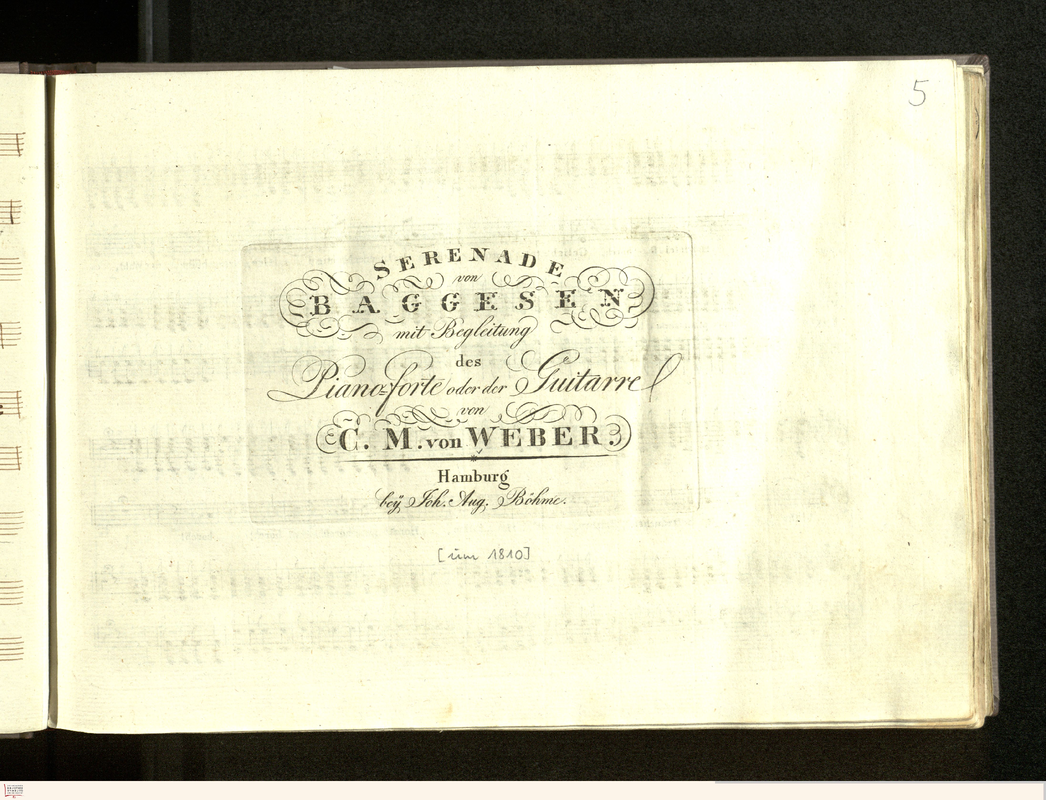 5
SERENADE
von
BAGGESEN
mit Begleitung
des
Piano=forte oder der Guitarre
von
C. M. von WEBER.
Hamburg
beÿ Joh. Aug. Böhme.
[um 1810]